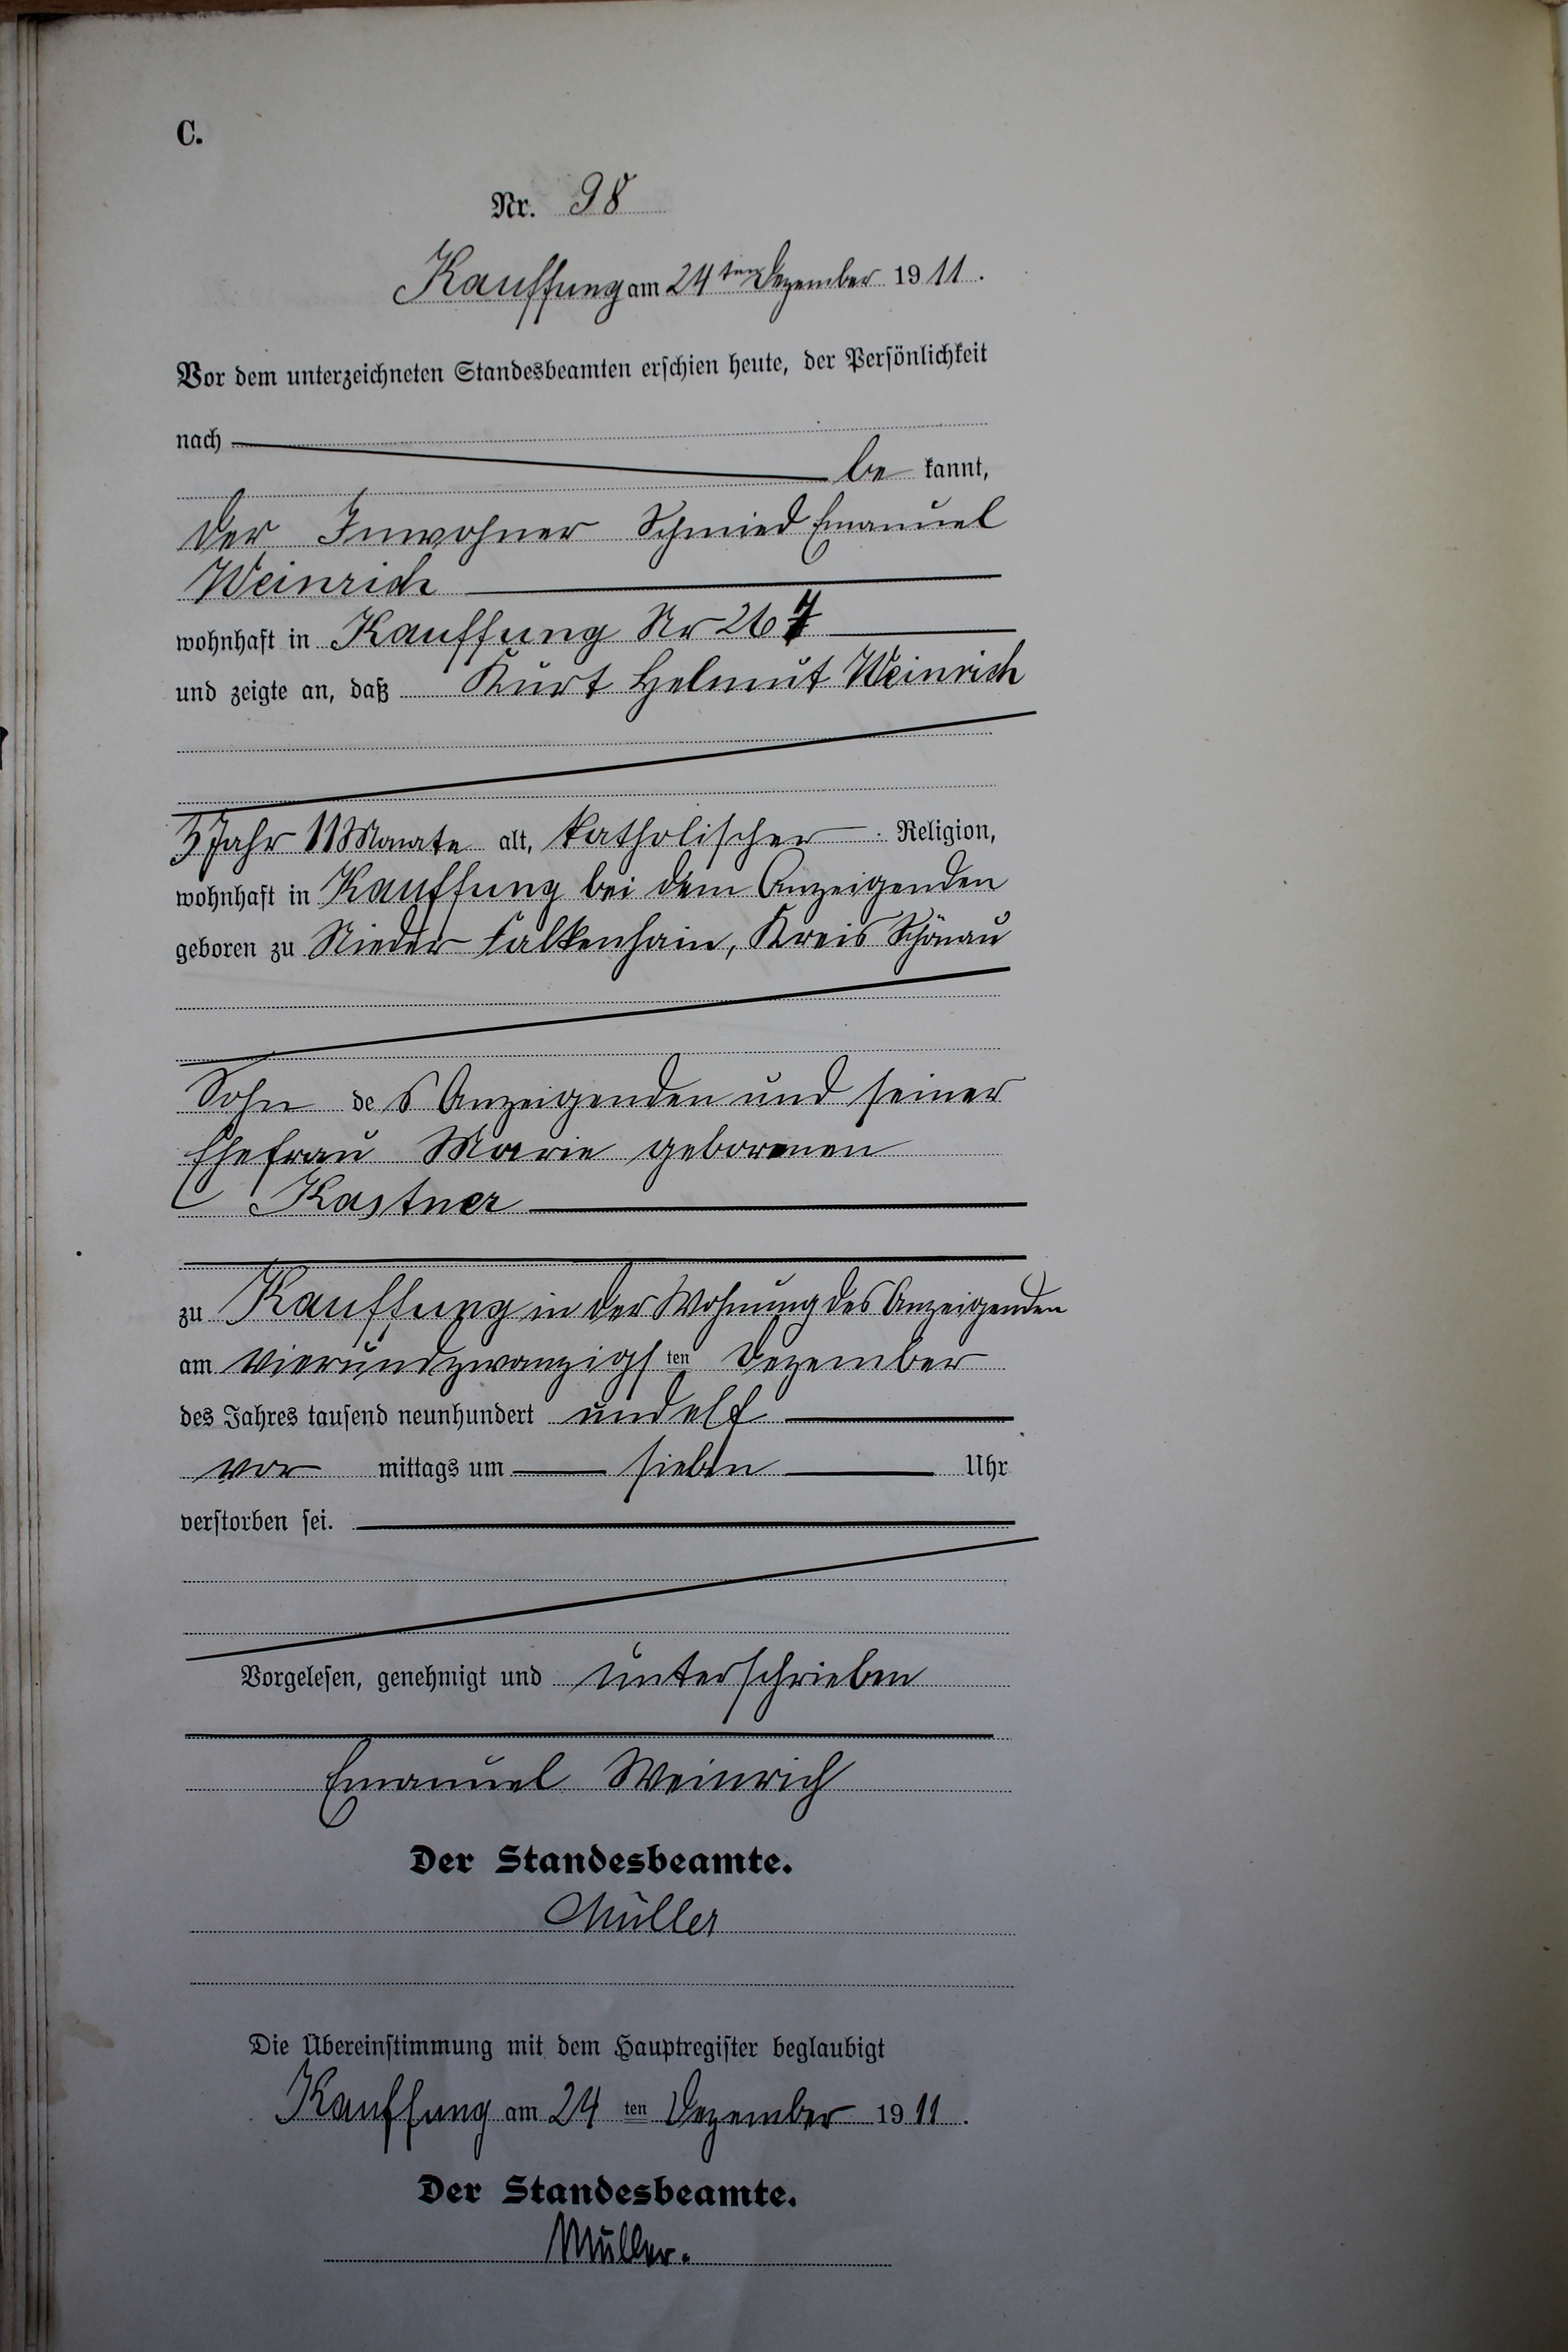 C.
Nr. 98
Kauffung am 24ten Dezember 1911.
Vor dem unterzeichneten Standesbeamten erschien heute, der Persönlichkeit
nach
be kannt,
der Inwohner Schmied Emanuel
Weinrich
wohnhaft in Kauffung Nr 267
und zeigte an, daß Kurt Helmut Weinrich
3 Jahr 11 Monate alt, katholischer Religion,
wohnhaft in Kauffung bei dem Anzeigenden
geboren zu Nieder Falkenhain, Kreis Schönau
Sohn des Anzeigenden und seiner
Ehefrau Marie geborenen
Kastner
zu Kauffung in der Wohnung des Anzeigenden
am vierundzwanzigsten Dezember
des Jahres tausend neunhundert und elf
vor mittags um sieben Uhr
verstorben sei.
Vorgelesen, genehmigt und unterschrieben
Emanuel Weinrich
Der Standesbeamte.
Müller
Die Übereinstimmung mit dem Hauptregister beglaubigt
Kauffung am 24 ten Dezember 1911.
Der Standesbeamte.
Müller.